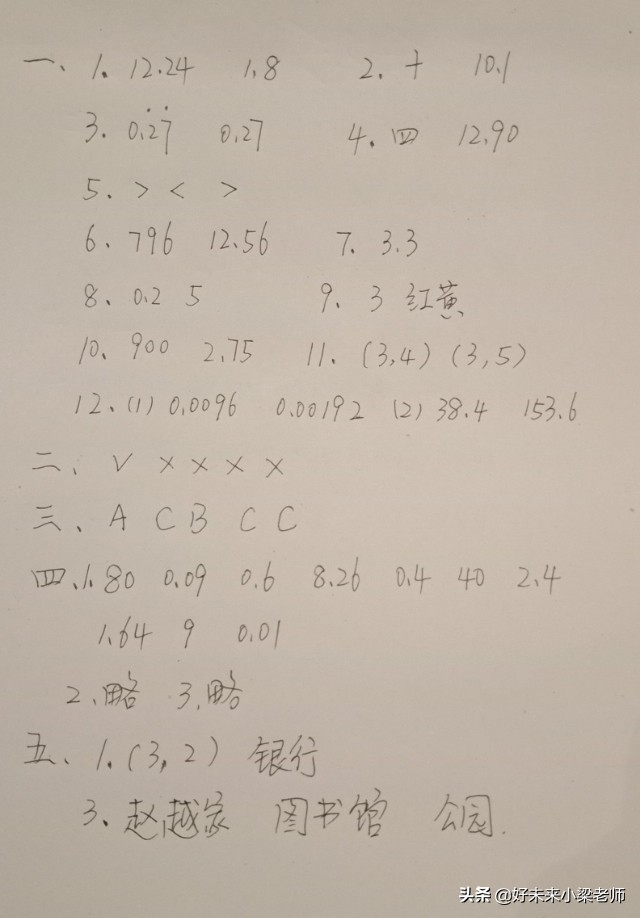 一、1. 12.24 1.8 2. 十 10.1
3. 0.2̇7̇ 0.27 4. 四 12.90
5. > < >
6. 796 12.56 7. 3.3
8. 0.2 5 9. 3 红黄
10. 900 2.75 11. (3,4) (3,5)
12. (1) 0.0096 0.00192 (2) 38.4 153.6
二、√ × × × ×
三、A C B C C
四、1. 80 0.09 0.6 8.26 0.4 40 2.4
1.64 9 0.01
2、略 3.略
五、1. (3,2) 银行
3、赵越家 图书馆 公园.
头条 @好未来小梁老师